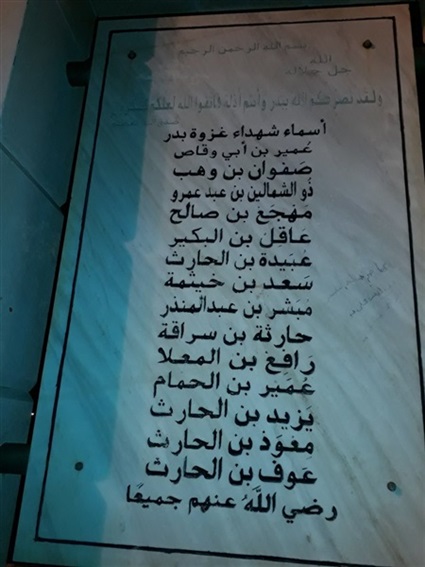 بسم الله الرحمن الرحيم
الله
جل جلاله
ولقد نصركم الله ببدر وأنتم أذلة فاتقوا الله لعلكم
أسماء شهداء غزوة بدر
عُمير بن أبي وقاص
صَفوان بن وهب
ذو الشمالين بن عبد عمرو
مَهجَع بن صالح
عَاقل بن البكير
عَبَيدة بن الحارث
سَعد بن خيثمة
مَبَشر بن عبدالمنذر
حَارثة بن سراقة
رَافع بن المعلا
عُمَير بن الحمام
يَزيد بن الحارث
مَعوَذ بن الحارث
عَوف بن الحارث
رضي اللَّهُ عنهم جميعًا